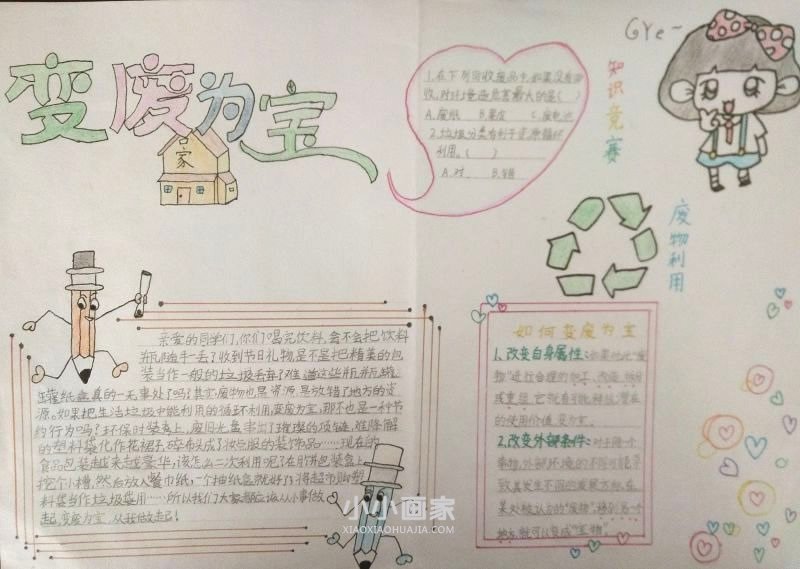 变废为宝
家
1.在下列回收废品中,如果没有回
收,对环境造成危害最大的是( )
A.废纸 B.果皮 C.废电池
2.垃圾分类有利于资源循环
利用。( )
A.对 B.错
GYe~
知识竞赛
废物利用
亲爱的同学们,你们喝完饮料,会不会把饮料
瓶随手一丢?收到节日礼物是不是把精美的包
装当作一般的垃圾丢弃?难道这些瓶瓶罐
罐纸盒真的一无事处了吗?其实废物也是资源,是放错了地方的资
源。如果把生活垃圾中能利用的循环利用,变废为宝,那不也是一种节
约行为吗?环保时装秀上,废旧光盘串出了璀璨的项链,难降解
的塑料袋化作花裙子,碎布头成了妆点服的装饰品……现在的
食品包装越来越豪华,该怎么二次利用呢?在月饼包装盒上
挖个小槽,然后放入餐巾纸,一个抽纸盒就好了;将超市购物塑
料袋当作垃圾袋用……所以我们大家都应该从小事做
起,变废为宝,从我做起!
如何变废为宝
1.改变自身属性:如果对此“废
物”进行合理的加工、改造、拆分
或重组,它就有可能释放潜在
的使用价值,变为宝。
2.改变外部条件:对于同一个
事物,外部环境的不同可能导
致其发生不同的发展方向,在
某处被认为的“废物”,移到另一个
地方,就可以变成“宝物”。
小小画家
XIAOXIAOHUAJIA.COM